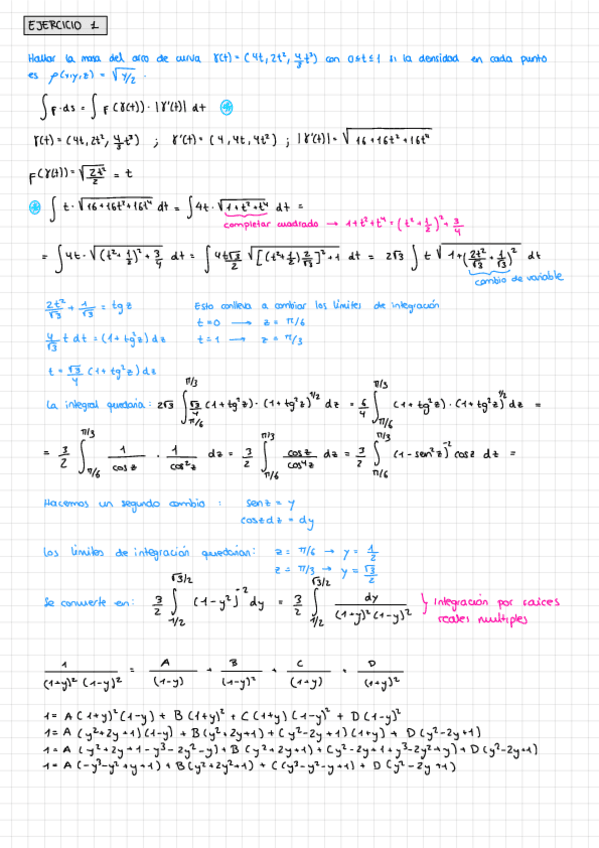 EJERCICIO 1
Hallar la masa del arco de curva γ(t) = (4t, 2t², 4/3 t³) con 0≤t≤1 si la densidad en cada punto
es ρ(x,y,z) = √(y/2) .
∫ F·ds = ∫ F(γ(t)) · |γ'(t)| dt
γ(t) = (4t, 2t², 4/3 t³) ; γ'(t) = (4, 4t, 4t²) ; |γ'(t)| = √(16+16t²+16t⁴)
F(γ(t)) = √(2t²/2) = t
∫ t · √(16+16t²+16t⁴) dt = ∫ 4t · √(1+t²+t⁴) dt =
completar cuadrado → 1+t²+t⁴ = (t²+1/2)² + 3/4
= ∫ 4t · √((t²+1/2)² + 3/4) dt = ∫ 4t √3/2 √([(t²+1/2) 2/√3]² + 1) dt = 2√3 ∫ t √(1+(2t²/√3 + 1/√3)²) dt
cambio de variable
2t²/√3 + 1/√3 = tg z Esto conlleva a cambiar los límites de integración
t=0 → z = π/6
4/√3 t dt = (1+tg²z) dz t=1 → z = π/3
t = √3/4 (1+tg²z) dz
La integral quedaría: 2√3 ∫_{π/6}^{π/3} √3/4 (1+tg²z) · (1+tg²z)^{1/2} dz = 6/4 ∫_{π/6}^{π/3} (1+tg²z) · (1+tg²z)^{1/2} dz =
= 3/2 ∫_{π/6}^{π/3} 1/cos z · 1/cos²z dz = 3/2 ∫_{π/6}^{π/3} cos z/cos⁴z dz = 3/2 ∫_{π/6}^{π/3} (1-sen²z)⁻² cos z dz =
Hacemos un segundo cambio : sen z = y
cos z dz = dy
Los límites de integración quedarían: z = π/6 → y = 1/2
z = π/3 → y = √3/2
Se convierte en: 3/2 ∫_{1/2}^{√3/2} (1-y²)⁻² dy = 3/2 ∫_{1/2}^{√3/2} dy/((1+y)²(1-y)²) } Integración por raíces
reales multiples
1/((1+y)² (1-y)²) = A/(1-y) + B/(1-y)² + C/(1+y) + D/(1+y)²
1 = A(1+y)²(1-y) + B(1+y)² + C(1+y)(1-y)² + D(1-y)²
1 = A(y²+2y+1)(1-y) + B(y²+2y+1) + C(y²-2y+1)(1+y) + D(y²-2y+1)
1 = A(y²+2y+1-y³-2y²-y) + B(y²+2y+1) + C(y²-2y+1+y³-2y²+y) + D(y²-2y+1)
1 = A(-y³-y²+y+1) + B(y²+2y²+1) + C(y³-y²-y+1) + D(y²-2y+1)